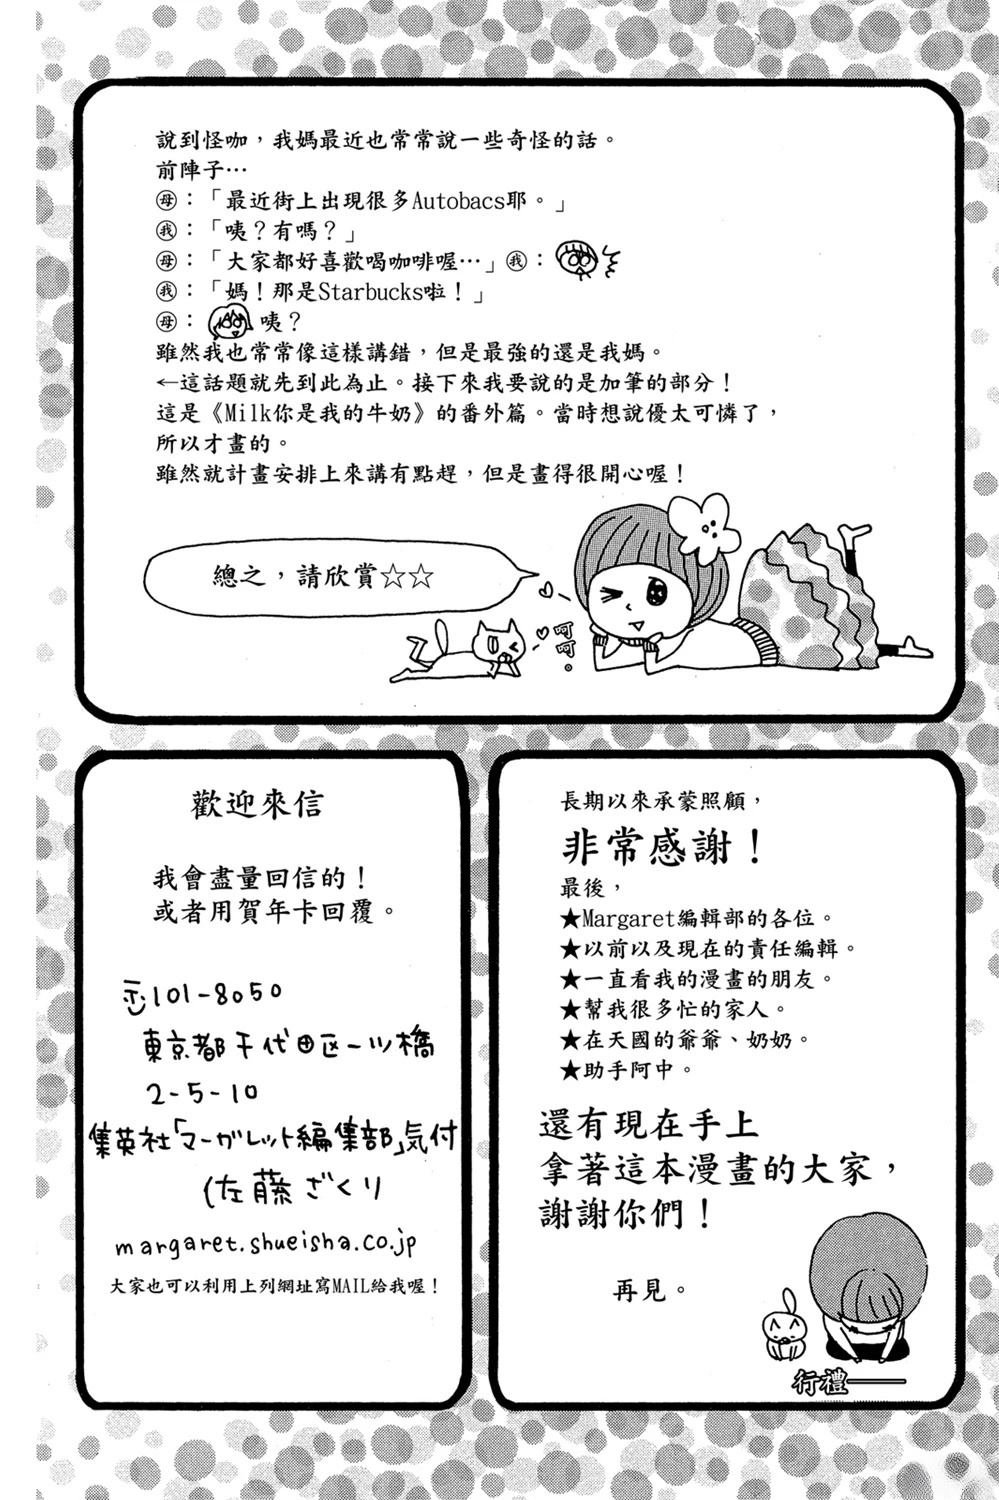 說到怪咖，我媽最近也常常說一些奇怪的話。
前陣子…
母：「最近街上出現很多Autobacs耶。」
我：「咦？有嗎？」
母：「大家都好喜歡喝咖啡喔…」我：
我：「媽！那是Starbucks啦！」
母：咦？
雖然我也常常像這樣講錯，但是最強的還是我媽。
←這話題就先到此為止。接下來我要說的是加筆的部分！
這是《Milk你是我的牛奶》的番外篇。當時想說優太可憐了，
所以才畫的。
雖然就計畫安排上來講有點趕，但是畫得很開心喔！
總之，請欣賞☆☆
呵呵。
歡迎來信
我會盡量回信的！
或者用賀年卡回覆。
〒101-8050
東京都千代田区一ツ橋
2-5-10
集英社「マーガレット編集部」気付
佐藤ざくり
margaret.shueisha.co.jp
大家也可以利用上列網址寫MAIL給我喔！
長期以來承蒙照顧，
非常感謝！
最後，
★Margaret編輯部的各位。
★以前以及現在的責任編輯。
★一直看我的漫畫的朋友。
★幫我很多忙的家人。
★在天國的爺爺、奶奶。
★助手阿中。
還有現在手上
拿著這本漫畫的大家，
謝謝你們！
再見。
行禮——